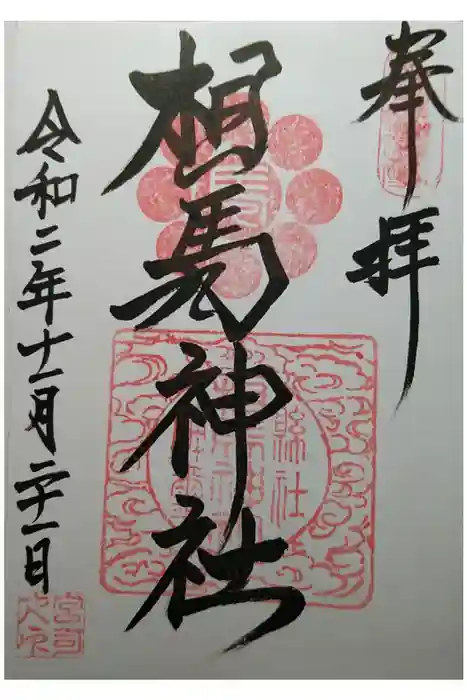 奉拝
相馬神社
令和二年十一月二十一日
縣社